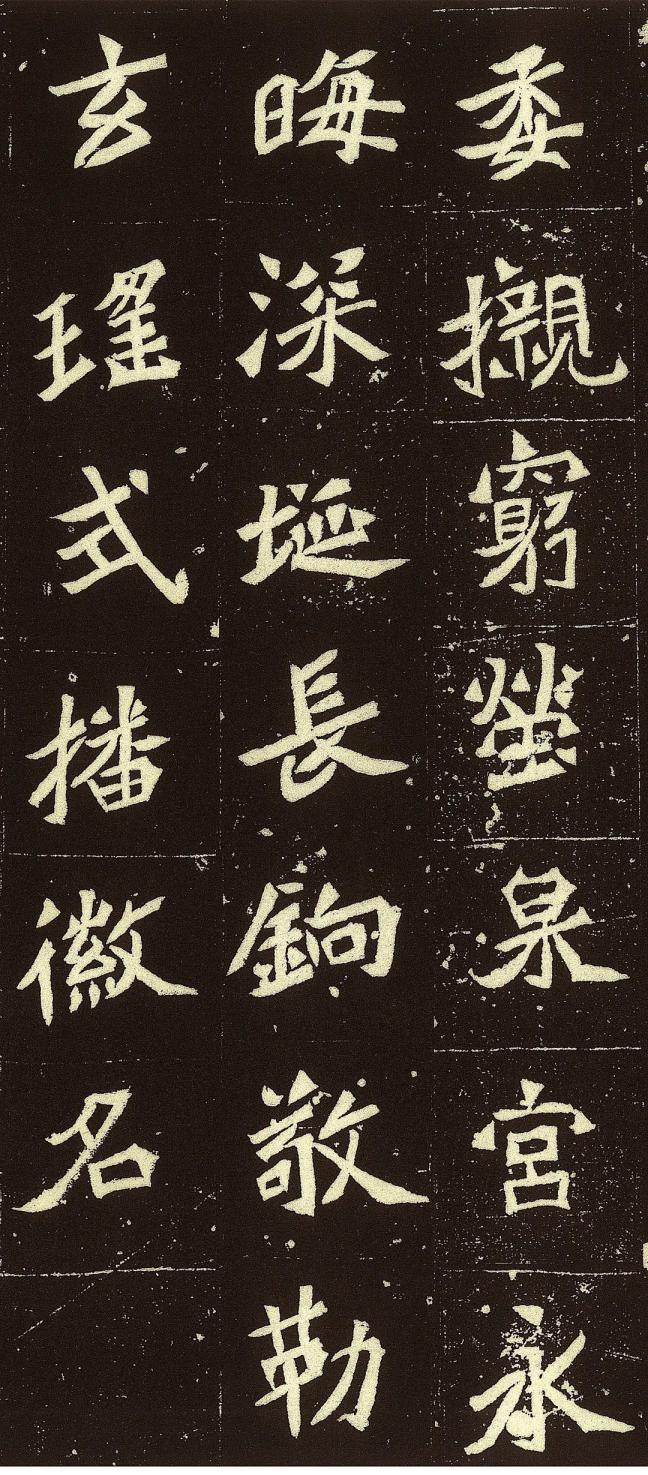 委櫬窮塋泉宮永
晦深埏長銄敬勒
玄瑤式播徽名